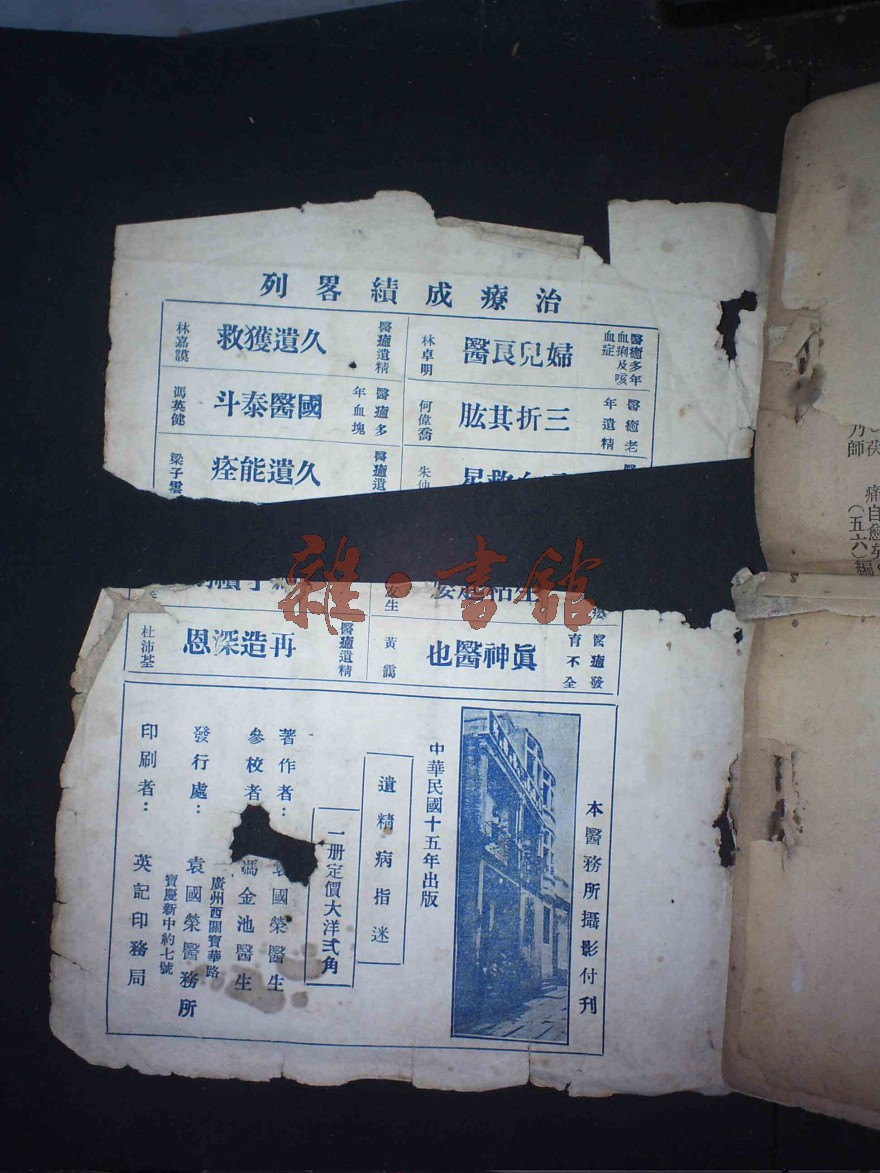 治療成績畧列
醫癒多年
血痢及咳
血症
婦兒良醫
林卓明
醫癒遺精
久遺獲救
林嘉謨
醫癒老
年遺精
三折其肱
何偉喬
醫癒多
年血塊
國醫泰斗
馮英健
救星
朱仲
醫癒遺
久遺能痊
梁子雲
醫癒發
育不全
眞神醫也
黃靄
醫癒遺精
再造深恩
杜沛荃
本醫務所攝影付刋
中華民國十五年出版
遺精病指迷
一册定價大洋弍角
著作者：袁國榮醫生
參校者 馮金池醫生
發行處：袁國榮醫務所
廣州西關寶華路
寶慶新中約七號
印刷者：英記印務局
雜·書館
師
痛自愈
（五六）編